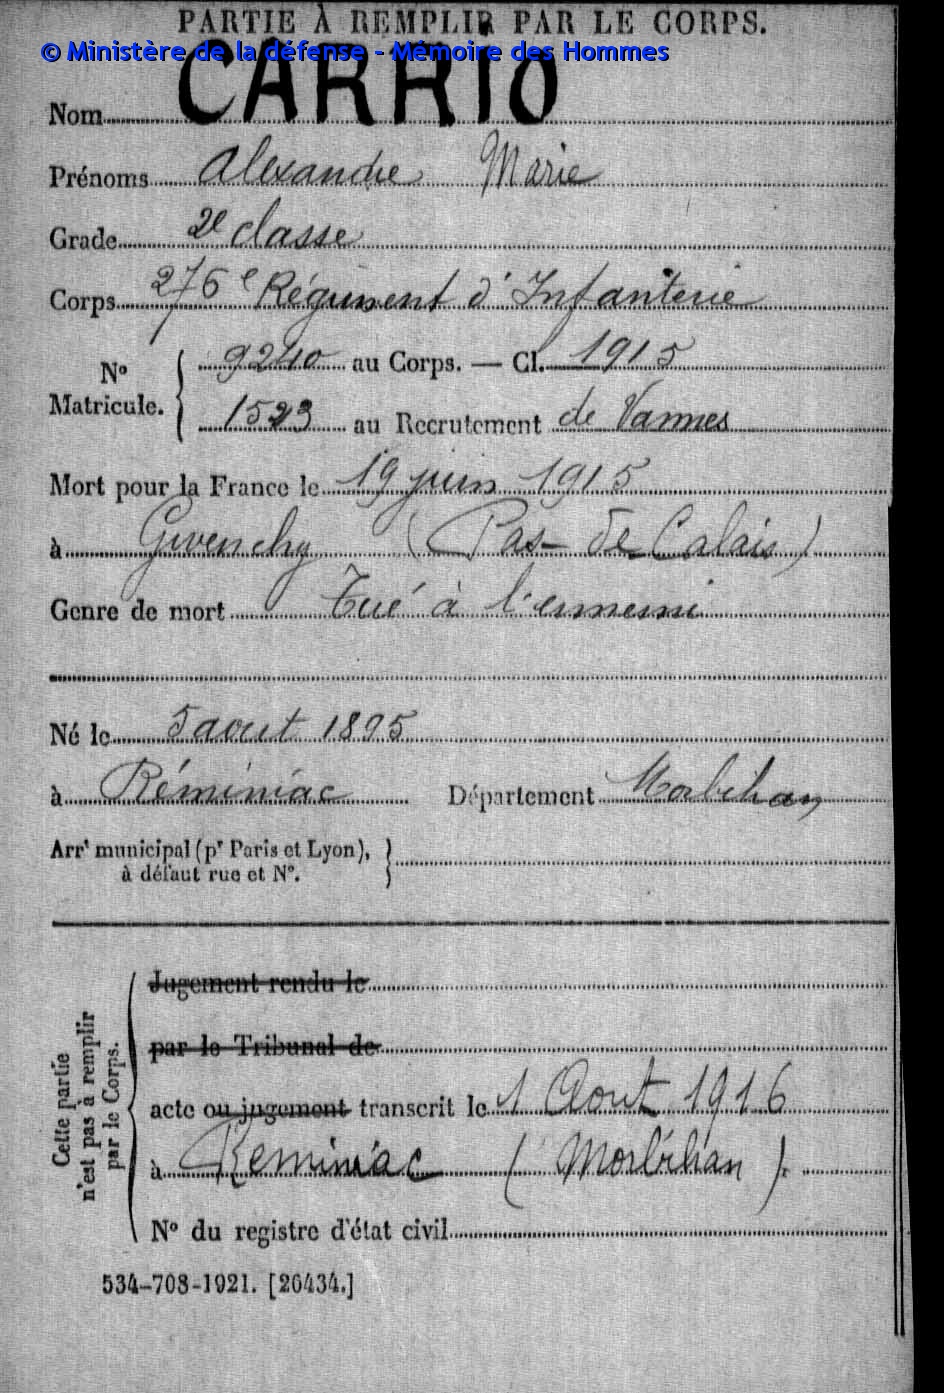 PARTIE À REMPLIR PAR LE CORPS.
© Ministère de la défense - Mémoire des Hommes
Nom CARRIO
Prénoms Alexandre Marie
Grade 2e classe
Corps 276e Régiment d'Infanterie
No Matricule. 9240 au Corps. — Cl. 1915
1523 au Recrutement de Vannes
Mort pour la France le 19 juin 1915
à Givenchy (Pas-de Calais)
Genre de mort Tué à l'ennemi
Né le 5 aout 1895
à Réminiac Département Morbihan
Arrt municipal (pr Paris et Lyon),
à défaut rue et No.
Cette partie
n'est pas à remplir
par le Corps.
Jugement rendu le
par le Tribunal de
acte ou jugement transcrit le 1 Aout 1916
à Réminiac (Morbihan).
No du registre d'état civil
534-708-1921. [26434.]